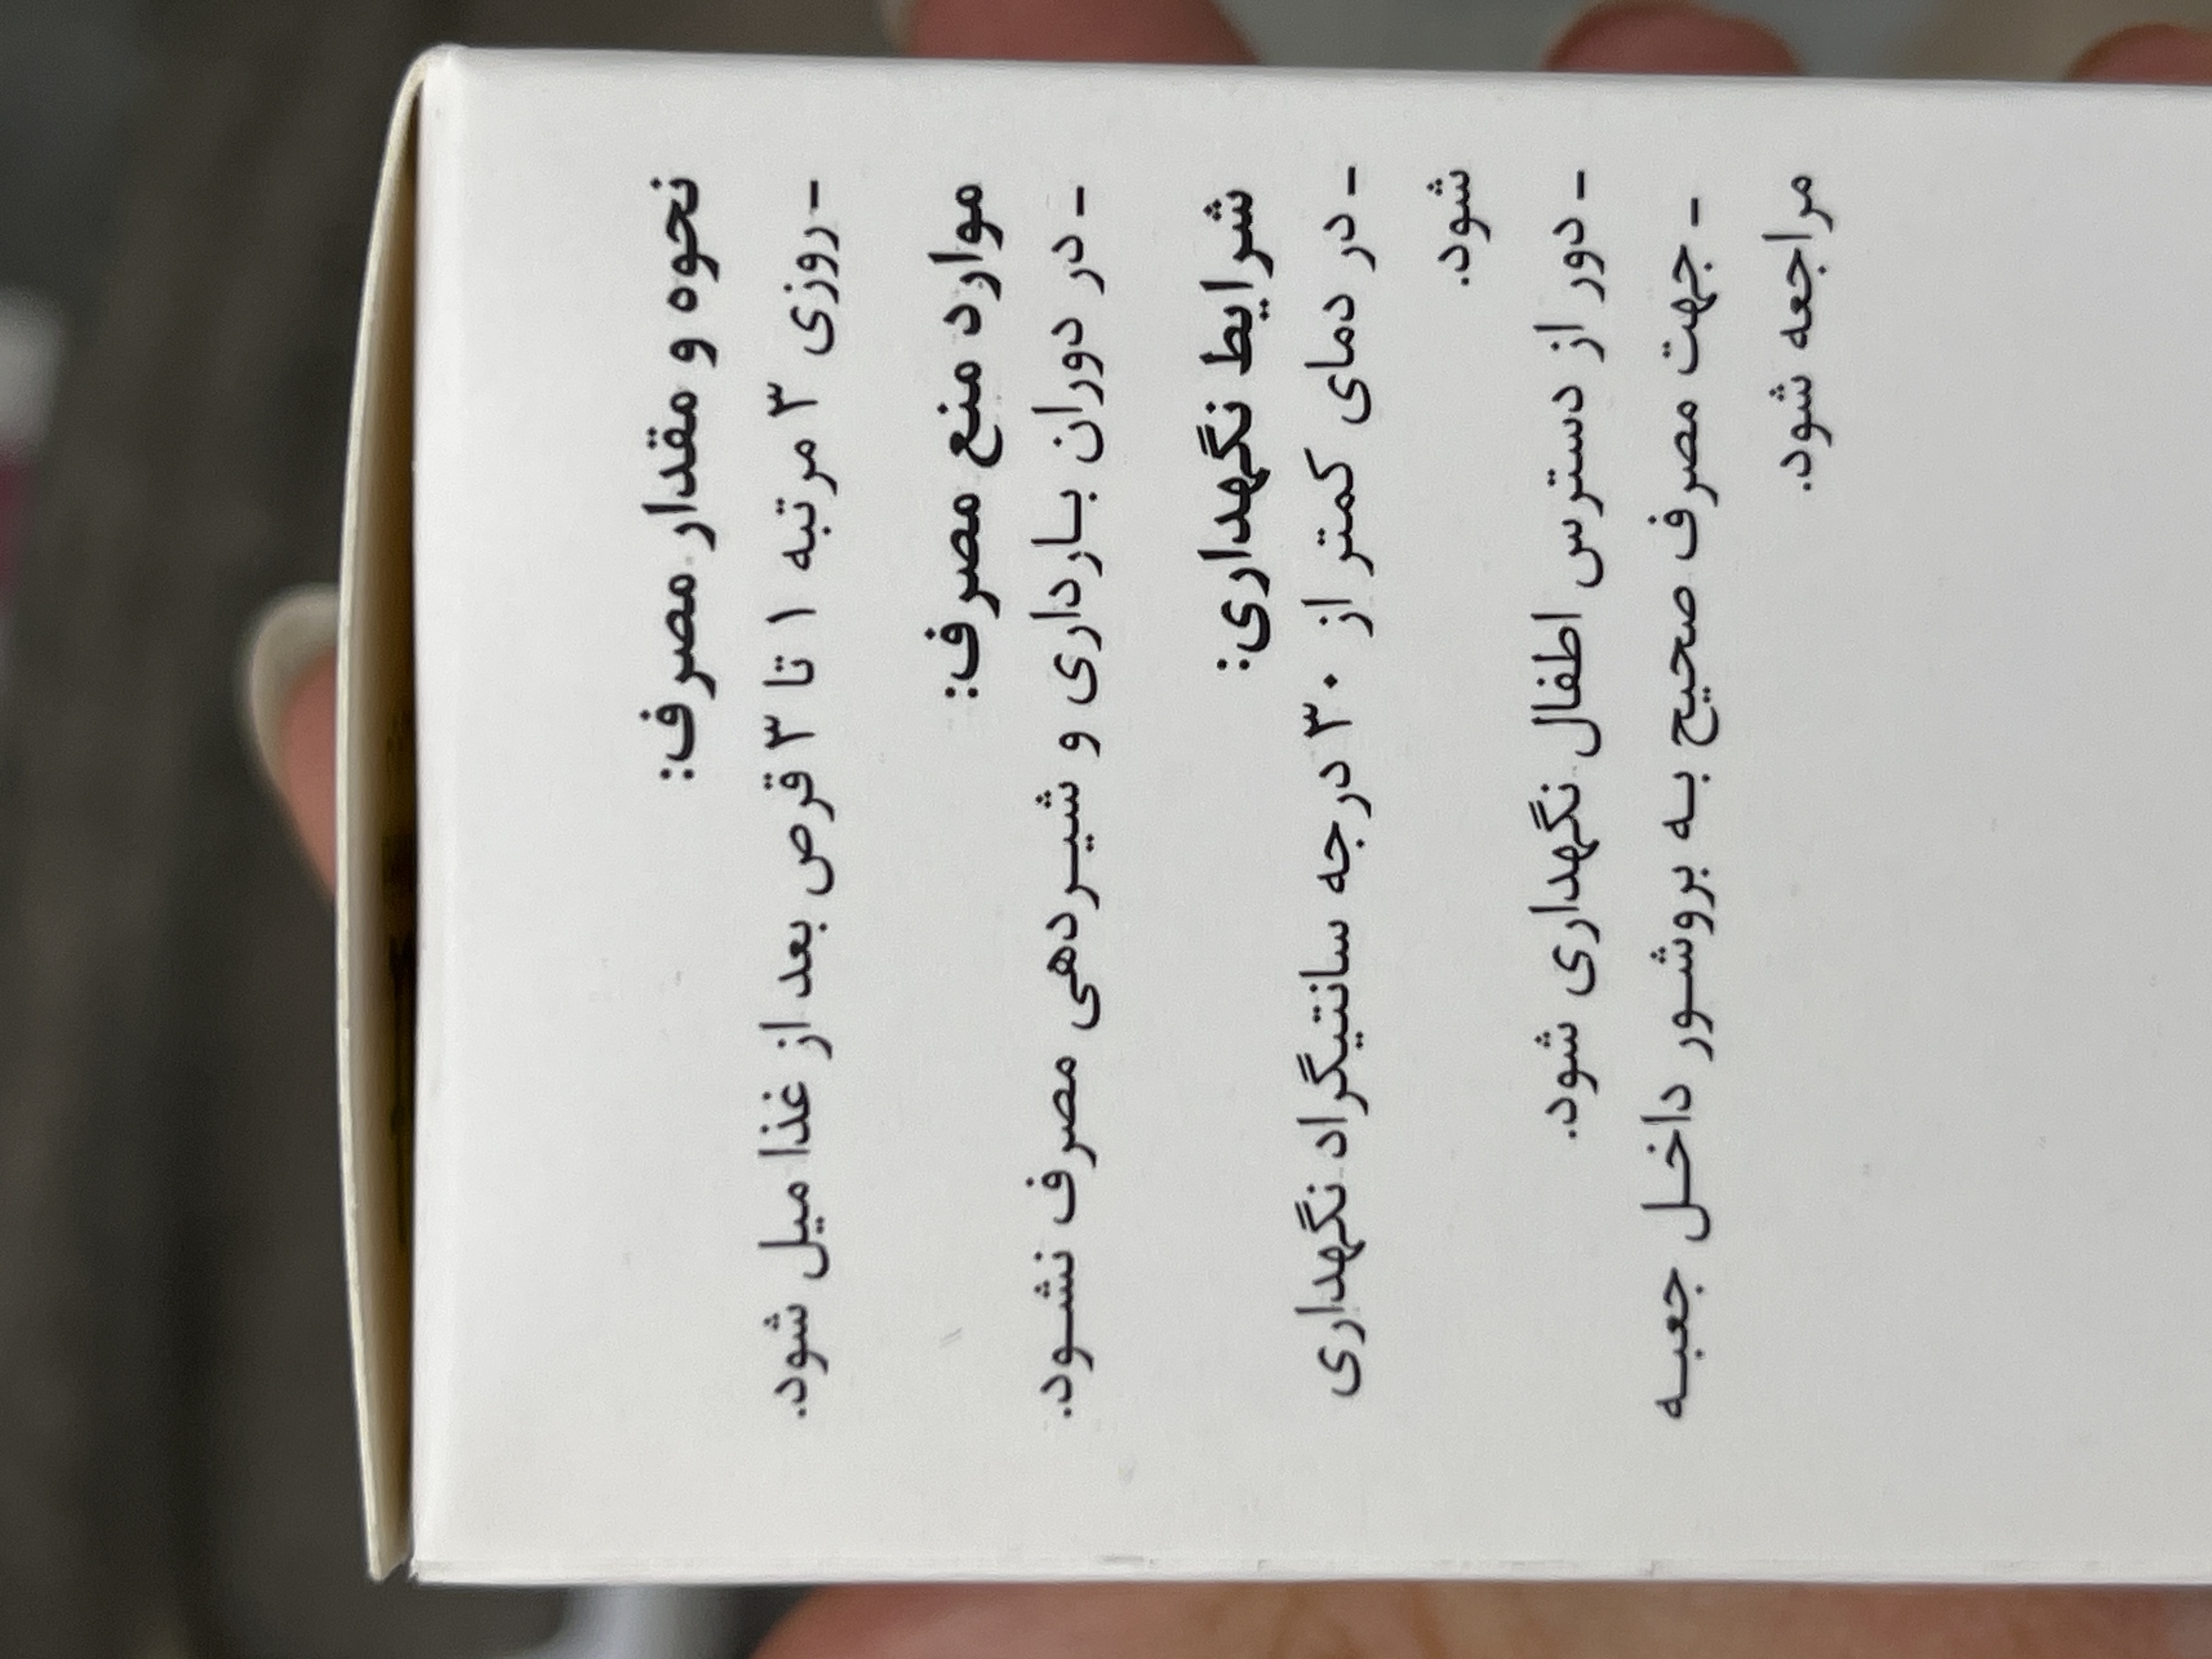 نحوه و مقدار مصرف:
-روزی ۳ مرتبه ۱ تا ۳ قرص بعد از غذا میل شود.
موارد منع مصرف:
-در دوران بارداری و شیردهی مصرف نشود.
شرایط نگهداری:
-در دمای کمتر از ۳۰ درجه سانتیگراد نگهداری
شود.
-دور از دسترس اطفال نگهداری شود.
-جهت مصرف صحیح به بروشور داخل جعبه
مراجعه شود.